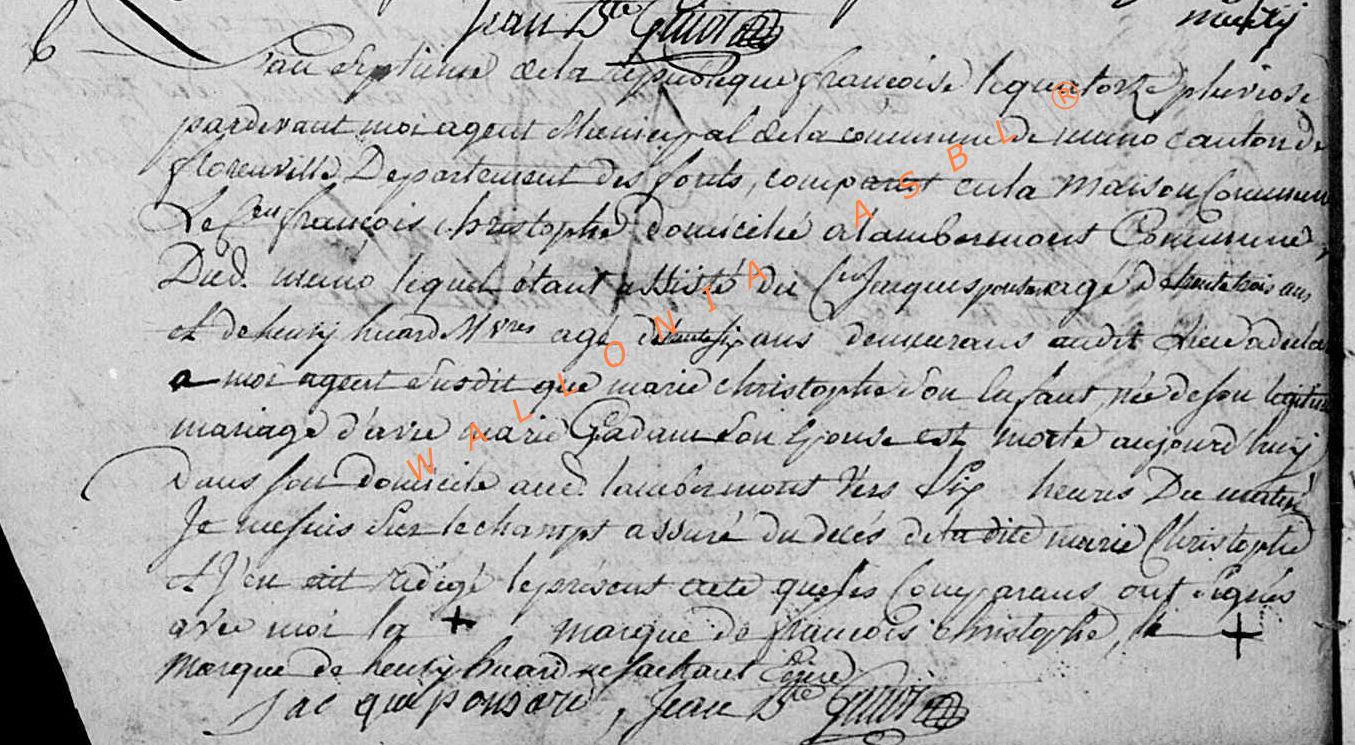 Jean Bte
6
L'an septieme de la republique francoise le quatorze pluviose
pardevant moi agent Municipal de la commune de muno canton de
florenville Departement des forêts, comparut en la Maison Commune
Le Cen françois christophe domicilié à lambermont Commune
Dud. muno lequel étant assisté du Cen Jacques ponsard agé de trente trois ans
et de henry huard agé de ans demeurans audit lieu a déclaré
a moi agent susdit que marie christophe son enfant née de son legitime
mariage d'avec marie Gadam son Epouse est morte aujourd'huy
Dans son domicile aud. lambermont vers Six heures Du matin
Je me suis sur le champs assuré du decés de la dite marie Christophe
et J'en ait redigé le présent acte que les Comparans ont signés
avec moi la + marque de francois christophe, la +
marque de henry huard ne sachant Ecrire
Jac que ponsard, Jean Bte
WALLONIA ASBL ®